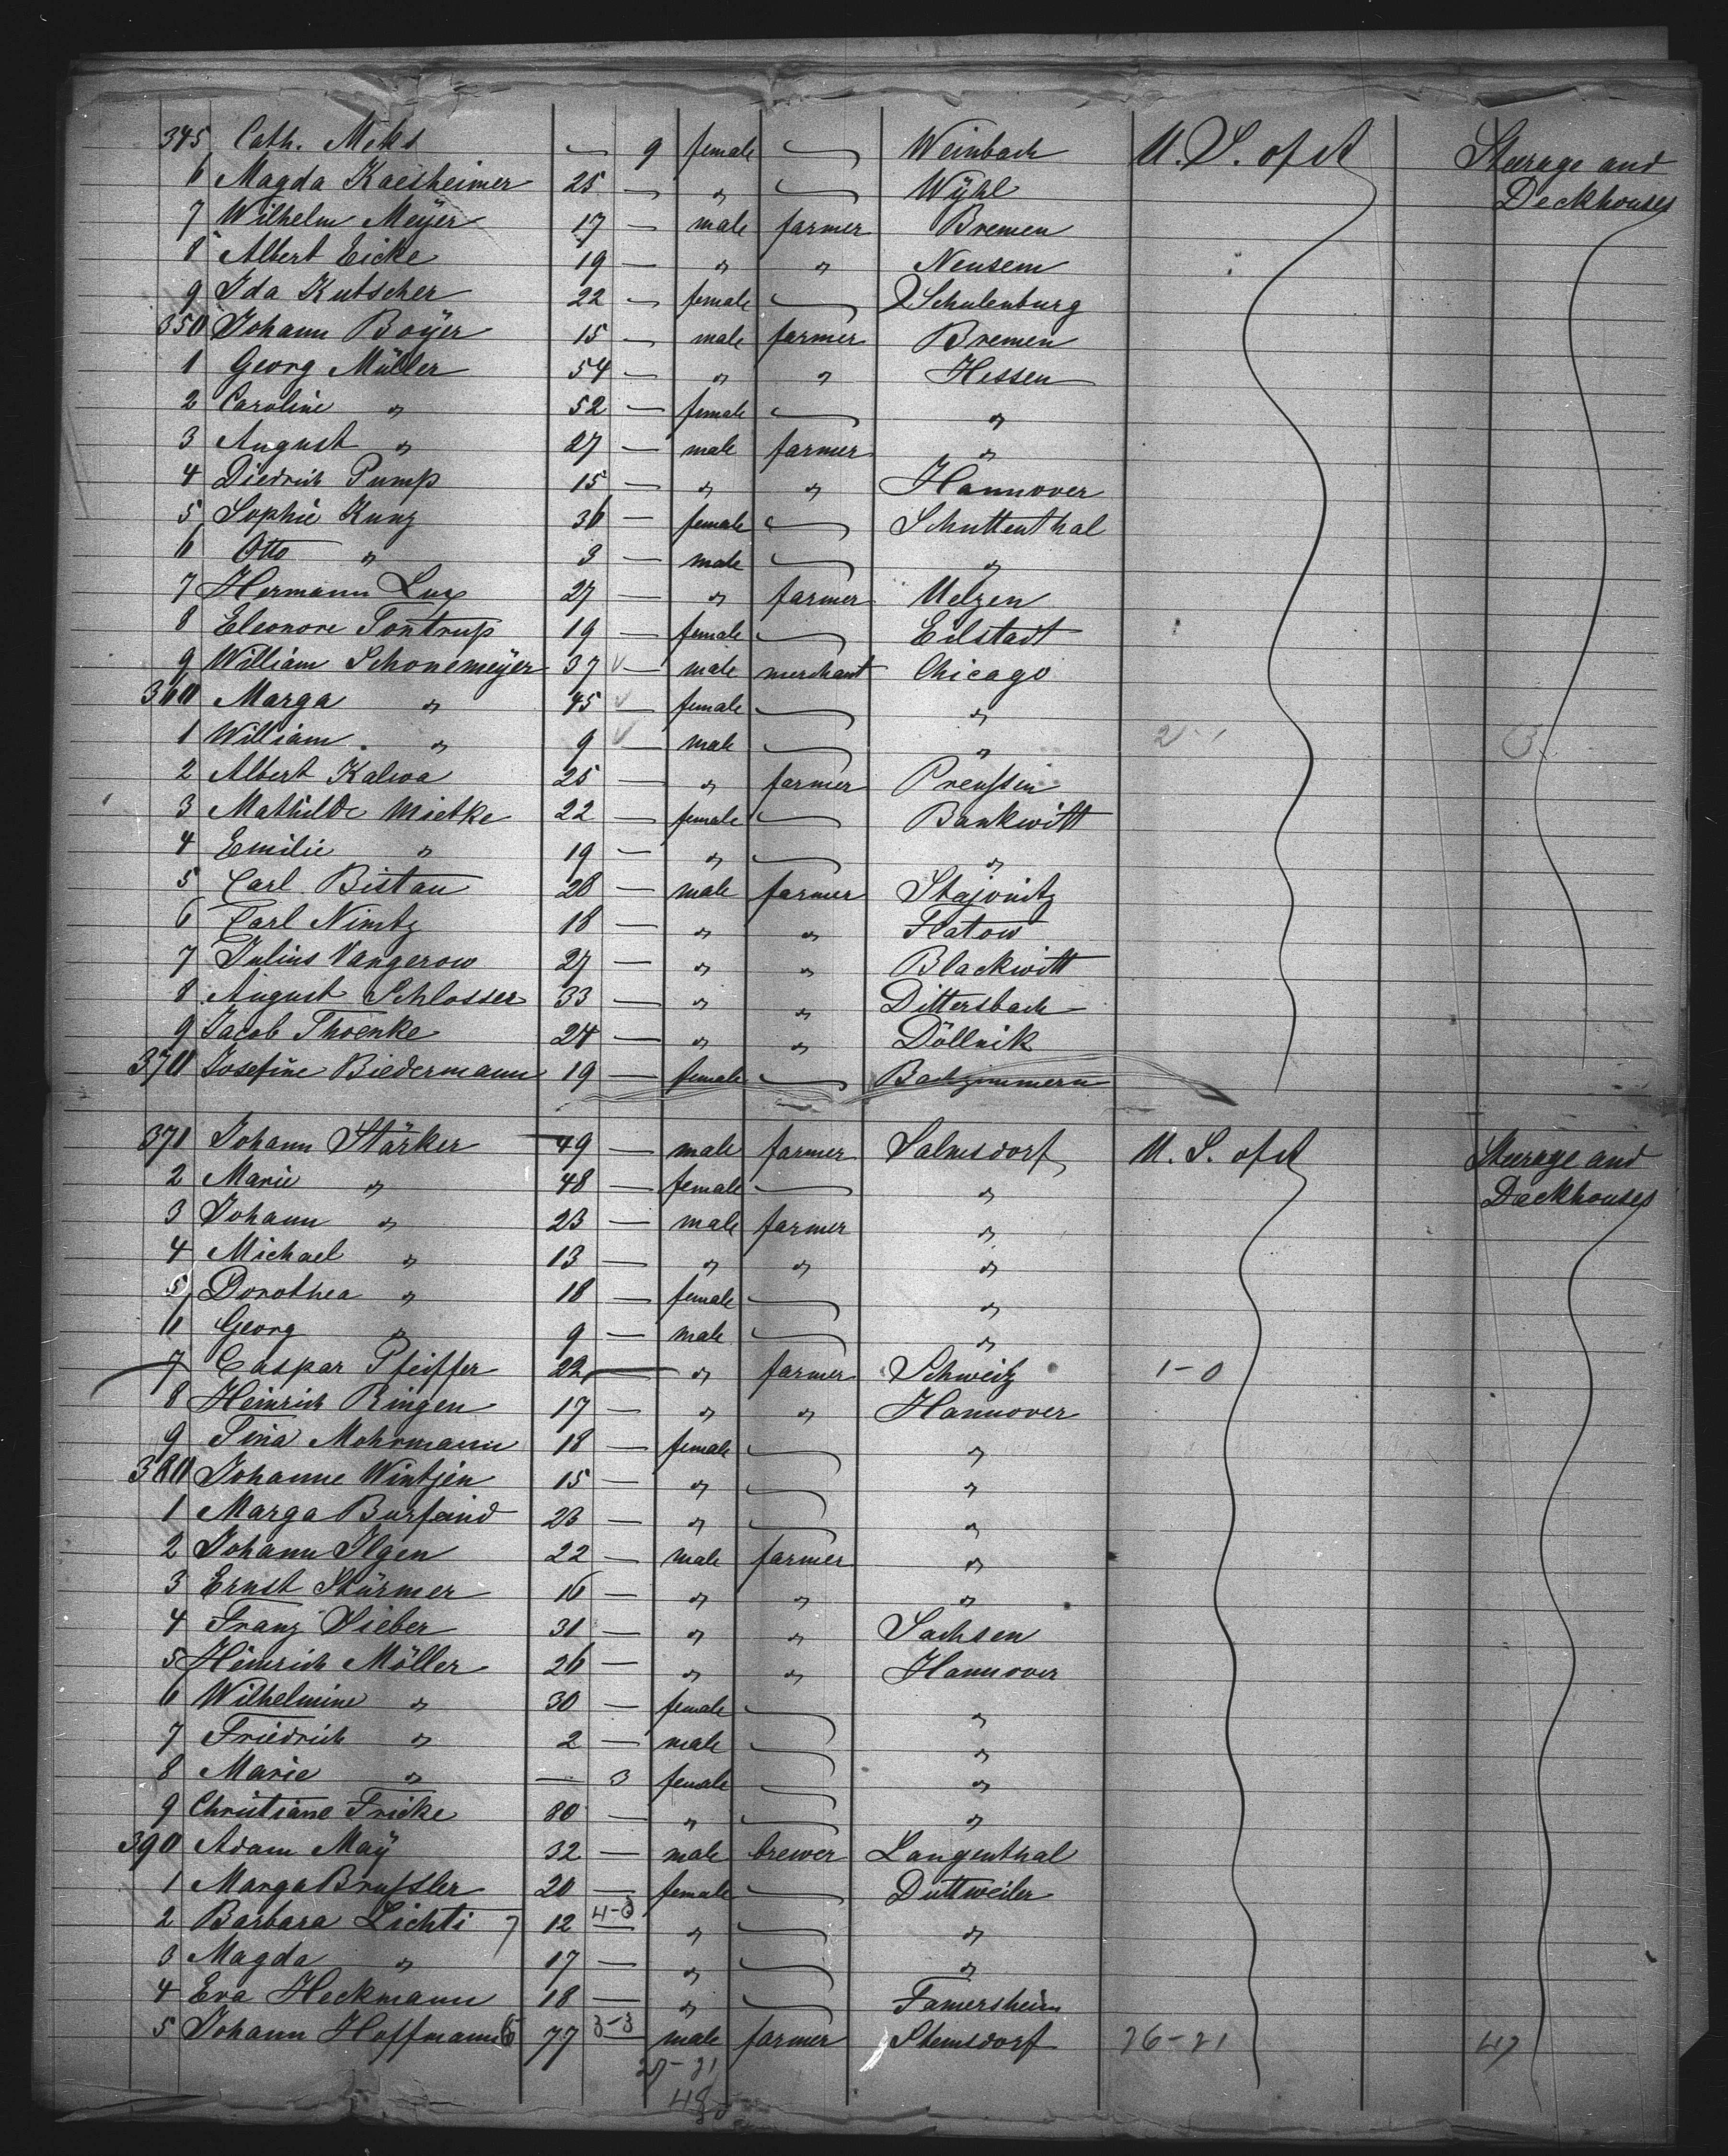 345 Cath. Meks — 9 female — Weinbach U. S. of A Steerage and
6 Magda Kaesheimer 25 — " — Wÿhl Deckhouses
7 Wilhelm Meÿer 17 — male farmer Bremen
8 Albert Eicke 19 — " " Neusem
9 Ida Kutscher 22 — female — Schulenburg
350 Johann Boÿer 15 — male farmer Bremen
1 Georg Müller 54 — " " Hessen
2 Caroline " 52 — female — "
3 August " 27 — male farmer "
4 Diedrich Pump 15 — " " Hannover
5 Sophie Kunz 36 — female — Schuttenthal
6 Otto " 3 — male — "
7 Hermann Lux 27 — " farmer Uelzen
8 Eleonore Tontrup 19 — female — Eilstadt
9 William Schonemeÿer 37 — male merchant Chicago
360 Marga " 45 — female — "
1 William " 9 — male — " 2-1 3
2 Albert Kalwa 25 — " farmer Preußen
3 Mathilde Mietke 22 — female — Bankwitt
4 Emilie " 19 — " — "
5 Carl Bistau 28 — male farmer Stajonitz
6 Carl Nimtz 18 — " " Flatow
7 Julius Vangerow 27 — " " Blackwitt
8 August Schlosser 33 — " " Dittersbach
9 Jacob Thoenke 24 — " " Döllnik
370 Josefine Biedermann 19 — female — Badzimmern
371 Johann Stärker 49 — male farmer Salmsdorf U. S. of A Steerage and
2 Marie " 48 — female — " Deckhouses
3 Johann " 23 — male farmer "
4 Michael " 13 — " " "
5 Dorothea " 18 — female — "
6 Georg " 9 — male — "
7 Caspar Pfeiffer 22 — " farmer Schweitz 1-0
8 Heinrich Ringen 17 — " " Hannover
9 Tina Mohrmann 18 — female — "
380 Johanne Wintjen 15 — " — "
1 Marga Burfeind 23 — " — "
2 Johann Ilgen 22 — male farmer "
3 Ernst Stürmer 16 — " " "
4 Franz Sieber 31 — " " Sachsen
5 Heinrich Möller 26 — " " Hannover
6 Wilhelmine " 30 — female — "
7 Friedrich " 2 — male — "
8 Marie " — 3 female — "
9 Christiane Fricke 80 — " — "
390 Adam Maÿ 32 — male brewer Langenthal
1 Marga Brußler 20 — female — Duttweiler
2 Barbara Lichti 7 12 4-3 — " — "
3 Magda " 17 — " — "
4 Eva Heckmann 18 — " — Famersheim
5 Johann Hoffmann 77 3-3 — male farmer Stemsdorf 26-21 47